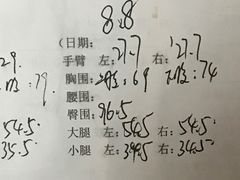 8.8
(日期:
29. 手臂 左: 27.7 右: 27.7
79. 胸围: 69 74
腰围:
臀围: 96.5
54.5 大腿 左: 54.5 右: 54.5
35.5 小腿 左: 34.5 右: 34.5